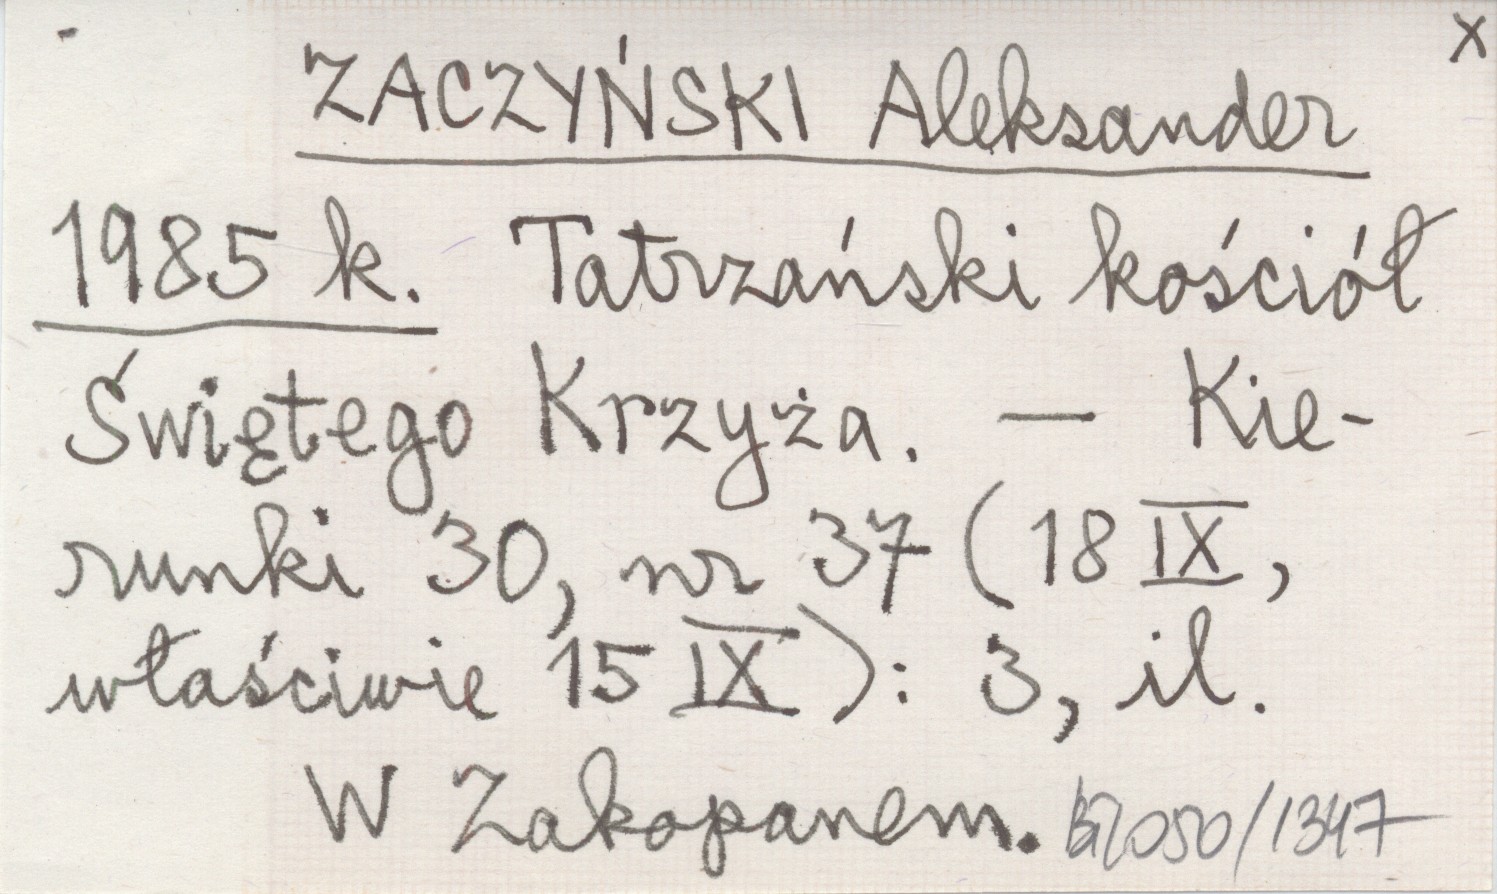 x
ZACZYŃSKI Aleksander
1985 k. Tatrzański kościół
Świętego Krzyża. — Kie-
runki 30, nr 37 (18 IX,
właściwie 15 IX): 3, il.
W Zakopanem.